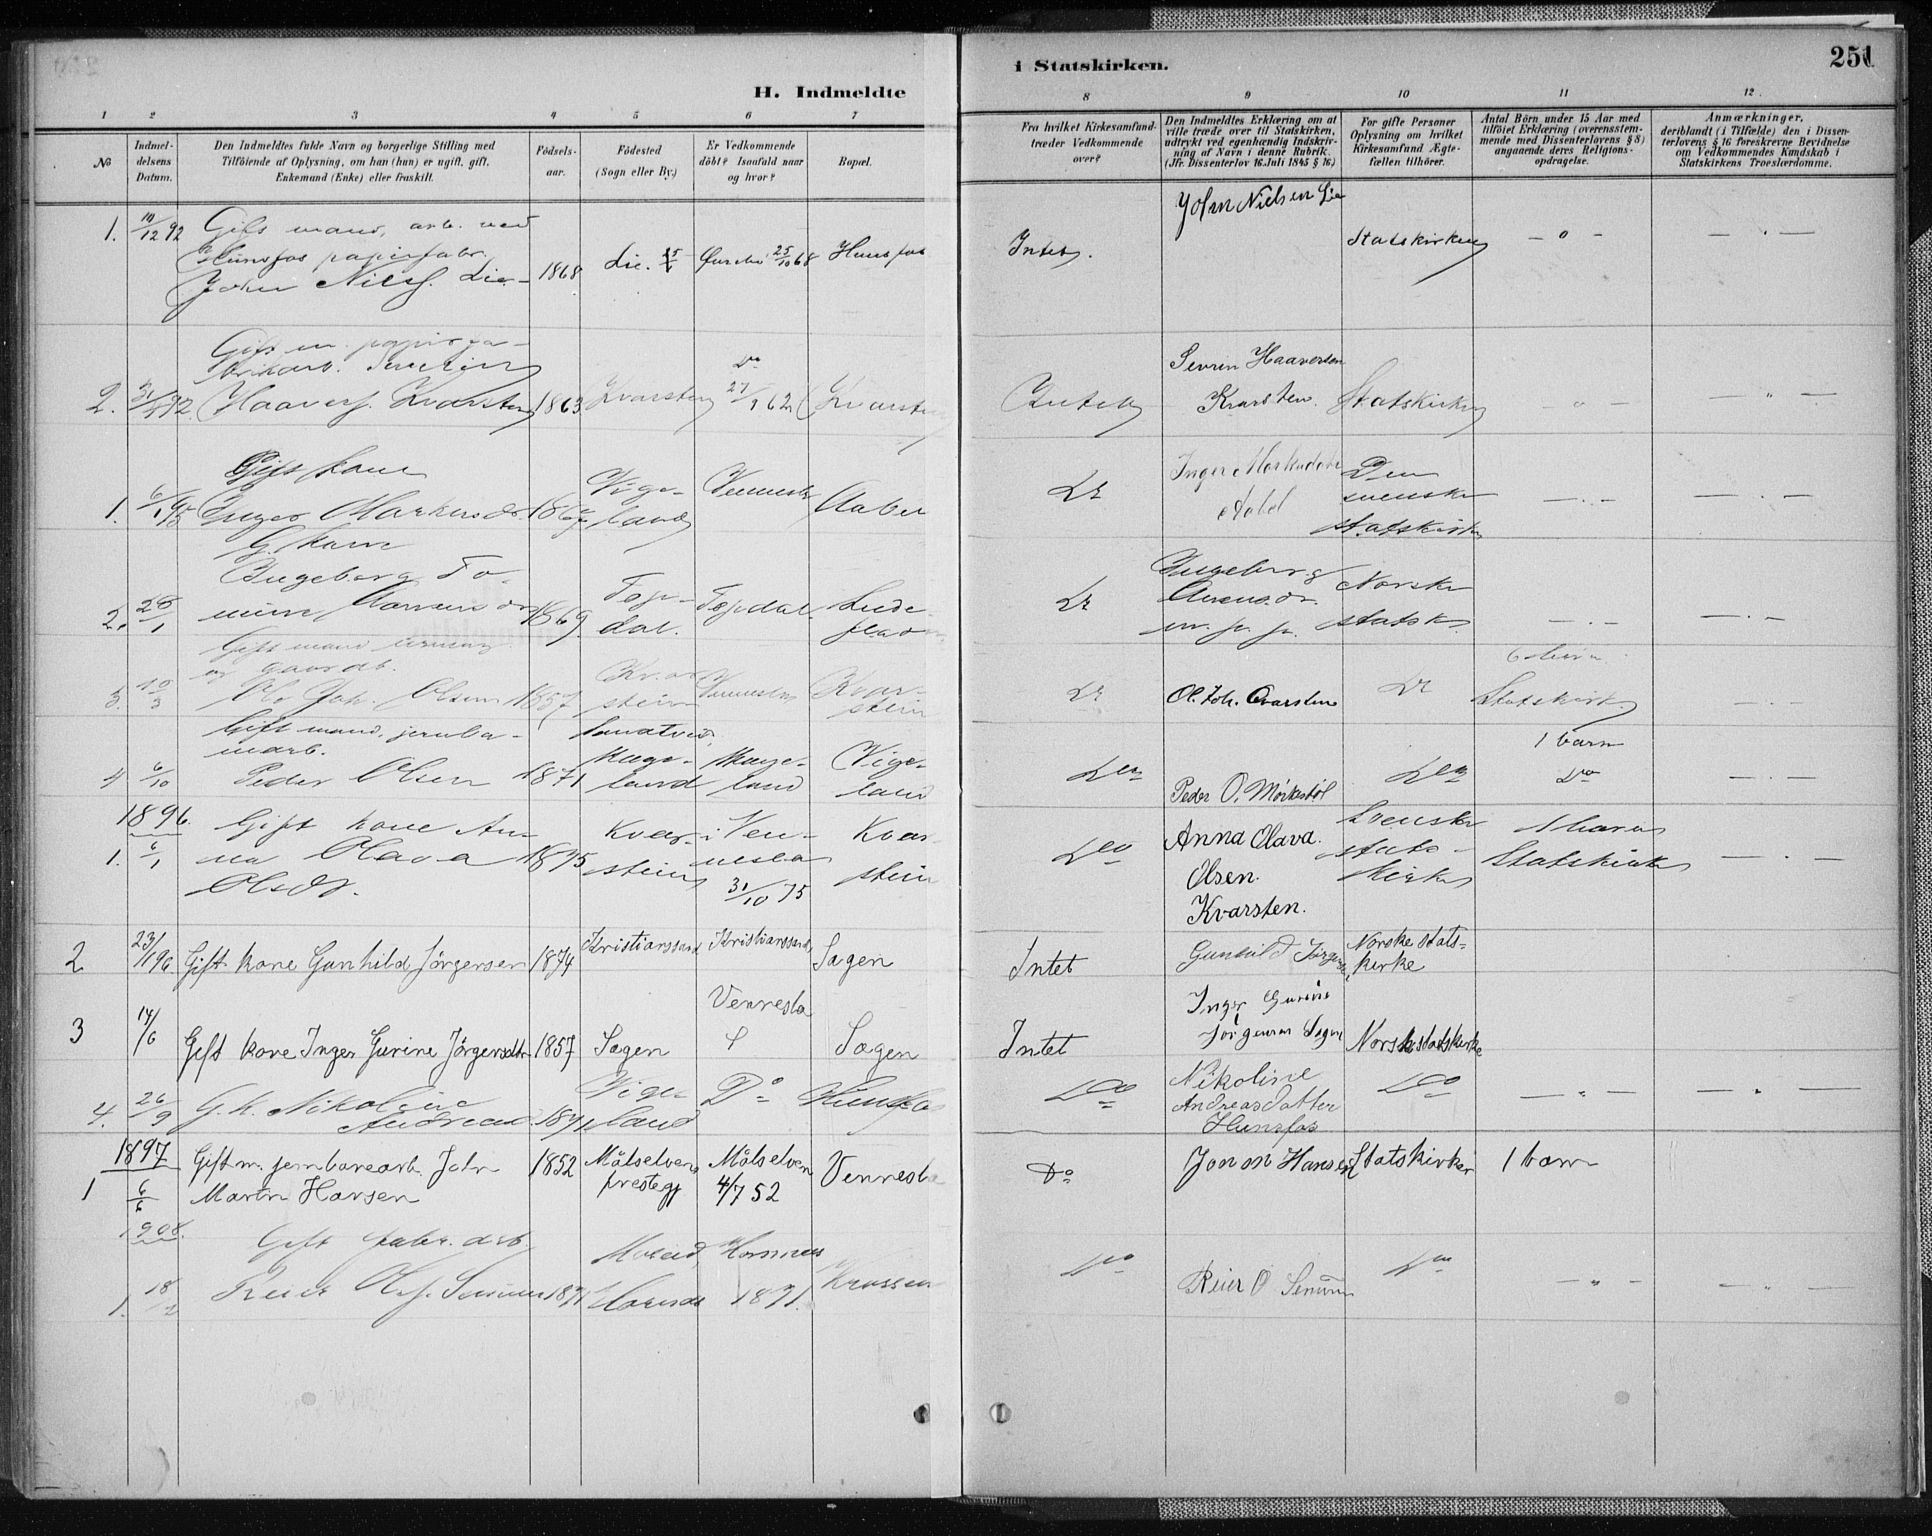 H. Indmeldte
i Statskirken.
251
1 2 3 4 5 6 7
8 9 10 11 12.
No
Indmel-
delsens
Datum.
Den Indmeldtes fulde Navn og borgerlige Stilling med
Tilföiende af Oplysning, om han (hun) er ugift, gift,
Enkemand (Enke) eller fraskilt.
Födsels-
aar.
Födested
(Sogn eller By.)
Er Vedkommende
döbt? Isaafald naar
og hvor?
Bopæl.
Fra hvilket Kirkesamfund
træder Vedkommende
over?
Den Indmeldtes Erklæring om at
ville træde over til Statskirken,
udtrykt ved egenhændig Indskriv-
ning af Navn i denne Rubrik.
(Jfr. Dissenterlov 16. Juli 1845 § 16.)
For gifte Personer
Oplysning om hvilket
Kirkesamfund Ægte-
fællen tilhörer.
Antal Börn under 15 Aar med
tilföiet Erklæring (overensstem-
mende med Dissenterlovens § 8)
angaaende deres Religions-
opdragelse.
Anmærkninger,
deriblandt (i Tilfælde) den i Dissen-
terlovens § 16 foreskrevne Bevidnelse
om Vedkommendes Kundskab i
Statskirkens Troeslærdomme.
1. 10/12 92
Gift mand, arb. ved
Hunsfos papirfabr.
John Nilss. Lie
1868
Lie.
25/10 68
Hunsfos
Intet.
John Nielsen Lie
Statskirken
— o —
2.
Gift m. papirfa-
Haavers. Kvarsten
1863
Kvarsten
Do
27/1 62
Kvarsten
Intet
Sevrin Haaversen
Kvarsten
Statskirken
— o —
1. 6/1 95
Gift kone
Inger Markusdr
Vige-
land
Vennesla
Intet
Do
Inger
Den
svenske
statskirke
2.
G. kone
Ingeborg To-
1869
Tope-
dal.
Topdal
Do
Ingeborg
m. p. p.
Norske
statsk.
3. 10/3
Gift mand
og gaardb.
Ole Joh. Olsen
1857
Kvar-
stein
Vennesla
Kvar-
stein
Do
Ol. Joh. Qvarsten
Do
6 börn
Statskirk.
4 6/10
Gift mand, jernba-
nearb.
Peder Olsen
1871
land
land
Vige-
land
Do
Peder O. Mörkestöl
Do
1 barn
Do
1896.
1. 6/1
Gift kone An-
na Olava
Olsdr.
1875
Kvar-
stein
i Ven-
nesla
31/10 75
Kvar-
stein
Do
Anna Olava.
Olsen.
Kvarsten.
Svenske
stats-
kirke
Statskirke
2 23/1 96
Gift kone Gunhild Jörgensen
1874
Kristianssand
Kristianssand
Sagen
Intet
Gunhild Jörgensen
Norske stats-
kirke
3 14/6
Gift kone Inger Gurine Jörgensdtr
1857
Sagen
Vennesla
S
Sagen
Intet
Inger Gurine
Jörgensen Sagen
Norsk statskirke
4. 26/9
G. k. Nikoline
Andreasd.
1871
Vige-
land
Do
Hunsfos
Do
Nikoline
Andreasdatter
Hunsfos
Do
1897
1 6/6
Gift m. jernbanearb. John
Martin Hansen
1852
Målselvens
prestegj
Målselven
4/7 52
Vennesla
Do
Jon M Hansen
Statskirken
1 barn
1908.
1. 18/2
Gift fabr. arb
Reier Ols. Senum
1871
Hornnes
1871.
Krossen
Do
Reier O Senum
Do